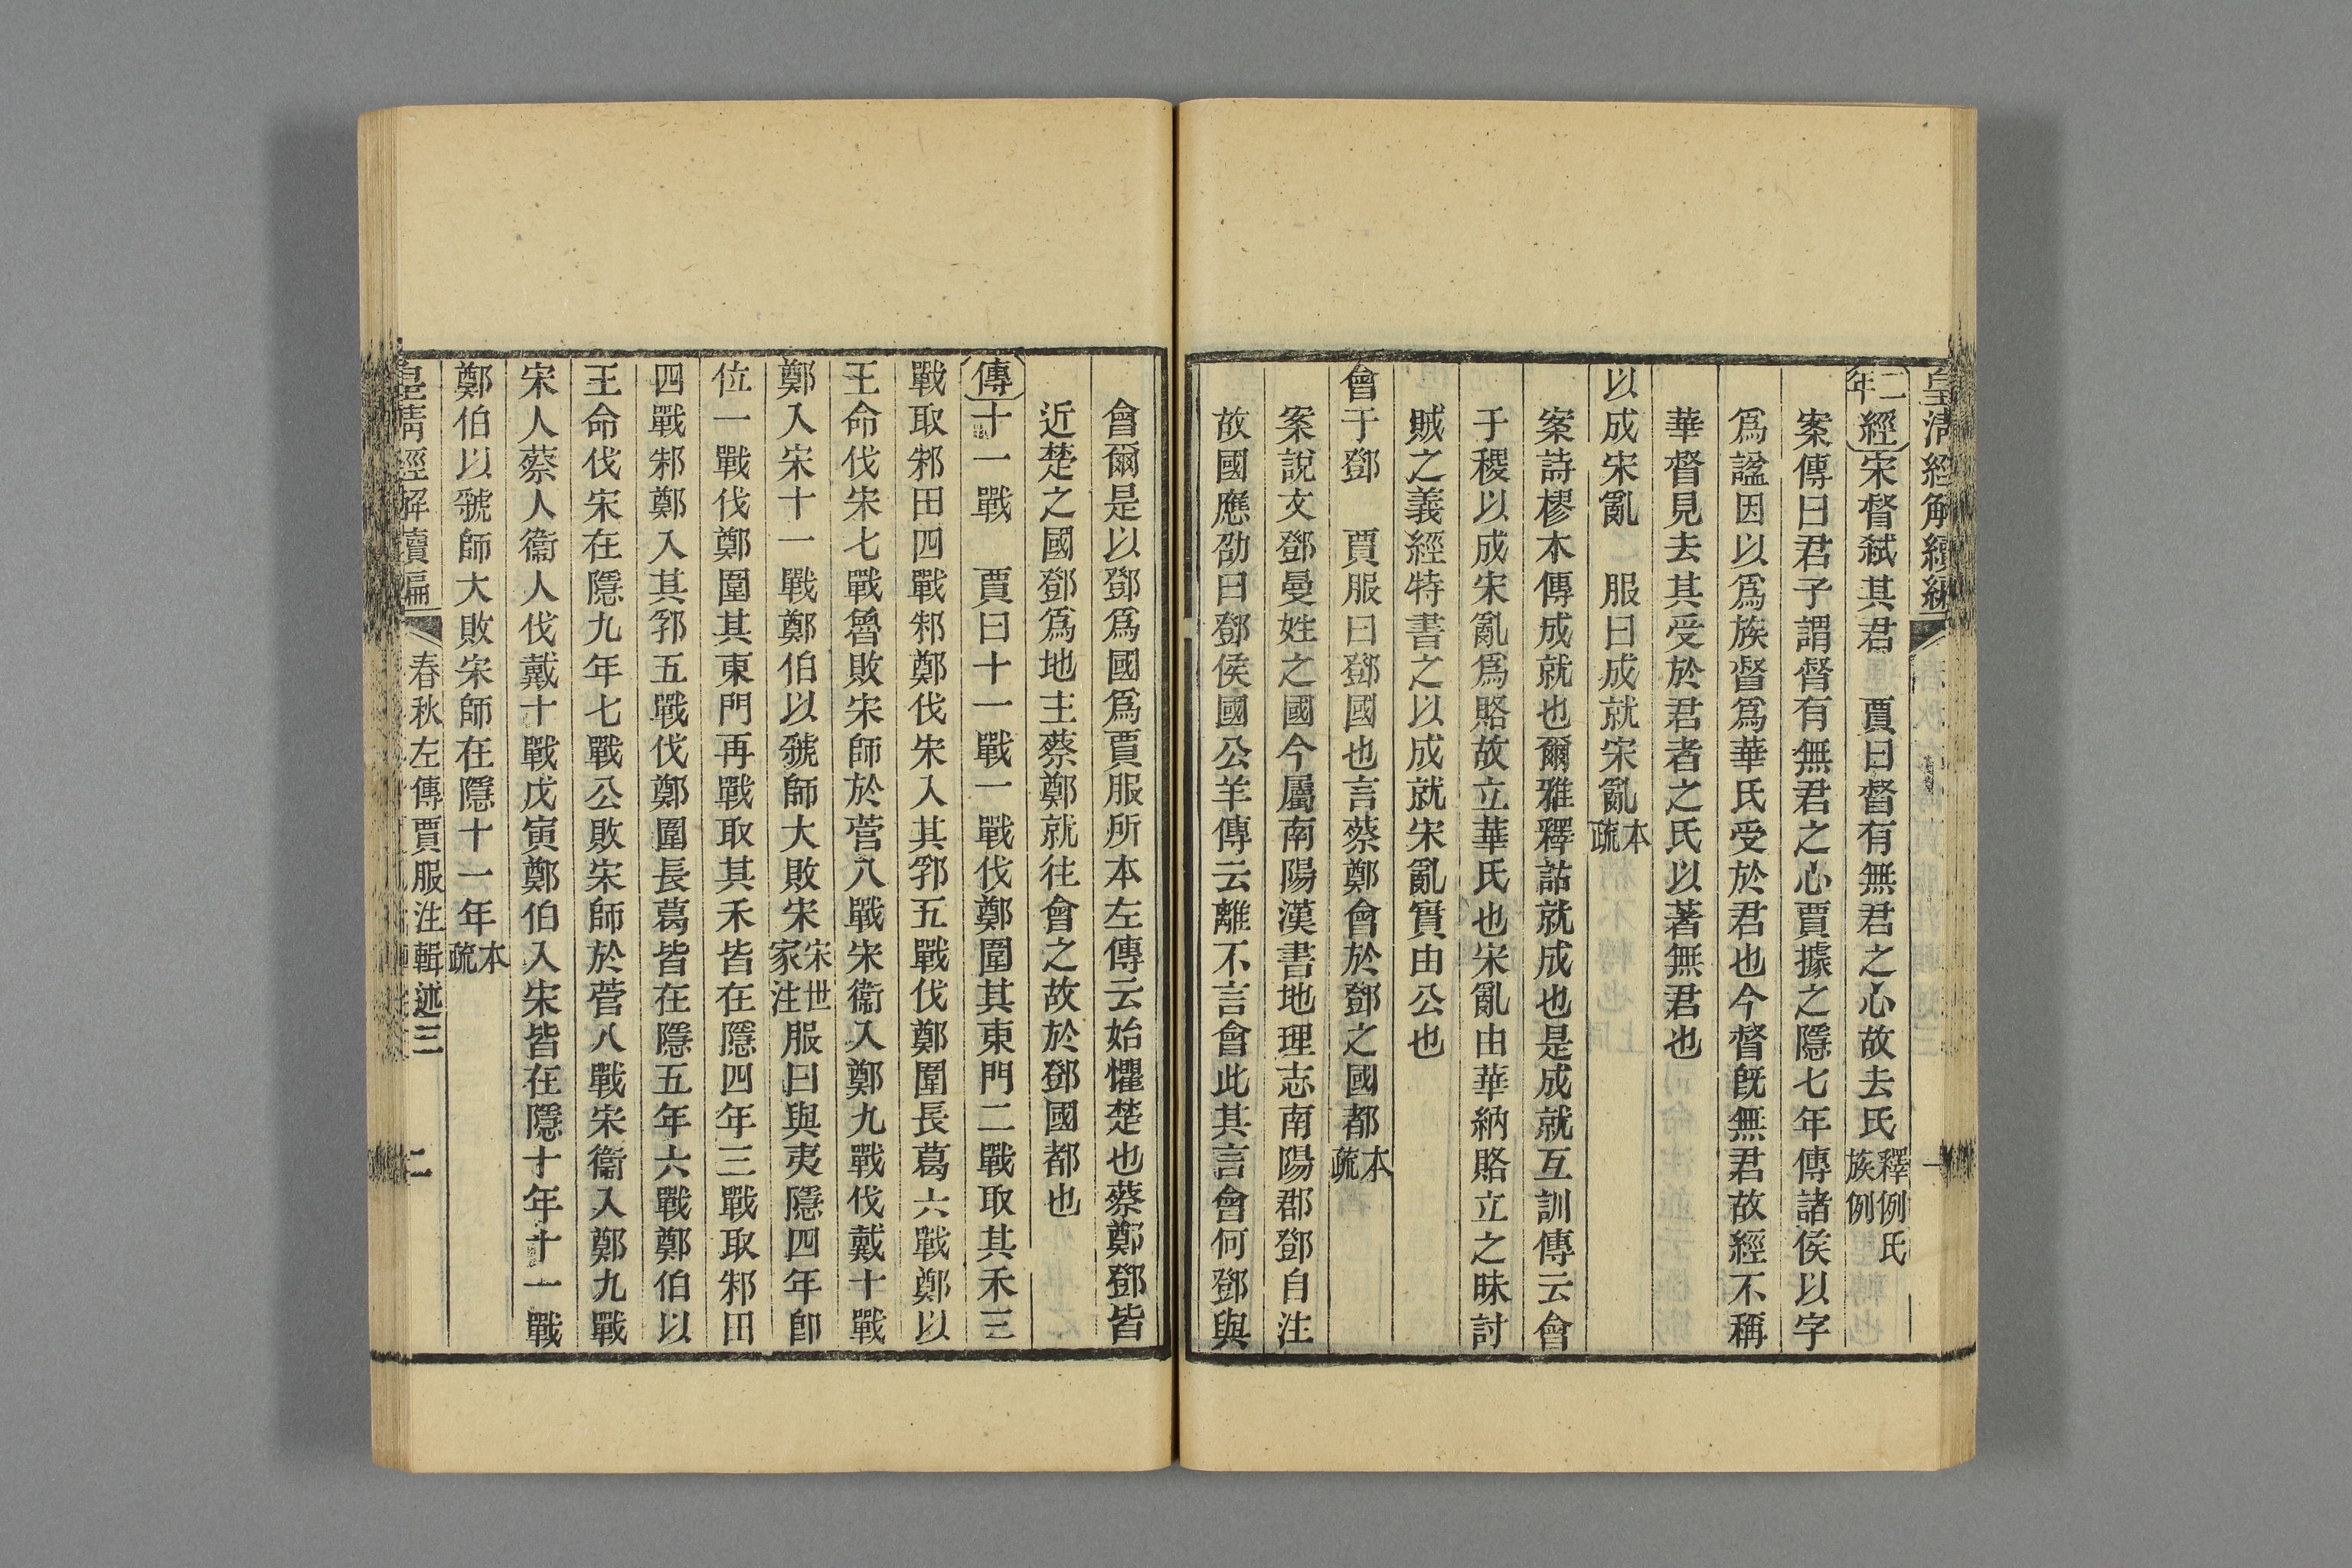 皇清經解續編
二年經宋督弒其君　賈曰督有無君之心故去氏釋例氏族例
案傳曰君子謂督有無君之心賈據之隱七年傳諸侯以字
爲諡因以爲族督爲華氏受於君也今督旣無君故經不稱
華督見去其受於君者之氏以著無君也
以成宋亂　服曰成就宋亂本疏
案詩樛木傳成就也爾雅釋詁就成也是成就互訓傳云會
于稷以成宋亂爲賂故立華氏也宋亂由華納賂立之昧討
賊之義經特書之以成就宋亂實由公也
會于鄧　賈服曰鄧國也言蔡鄭會於鄧之國都本疏
案說文鄧曼姓之國今屬南陽漢書地理志南陽郡鄧自注
故國應劭曰鄧侯國公羊傳云離不言會此其言會何鄧與
會爾是以鄧爲國爲賈服所本左傳云始懼楚也蔡鄭鄧皆
近楚之國鄧爲地主蔡鄭就往會之故於鄧國都也
傳十一戰　賈曰十一戰一戰伐鄭圍其東門二戰取其禾三
戰取邾田四戰邾鄭伐宋入其郛五戰伐鄭圍長葛六戰鄭以
王命伐宋七戰魯敗宋師於菅八戰宋衞入鄭九戰伐戴十戰
鄭入宋十一戰鄭伯以虢師大敗宋宋世家注服曰與夷隱四年卽
位一戰伐鄭圍其東門再戰取其禾皆在隱四年三戰取邾田
四戰邾鄭入其郛五戰伐鄭圍長葛皆在隱五年六戰鄭伯以
王命伐宋在隱九年七戰公敗宋師於菅八戰宋衞入鄭九戰
宋人蔡人衞人伐戴十戰戊寅鄭伯入宋皆在隱十年十一戰
鄭伯以虢師大敗宋師在隱十一年本疏
皇淸經解續編　春秋左傳賈服注輯述三　二